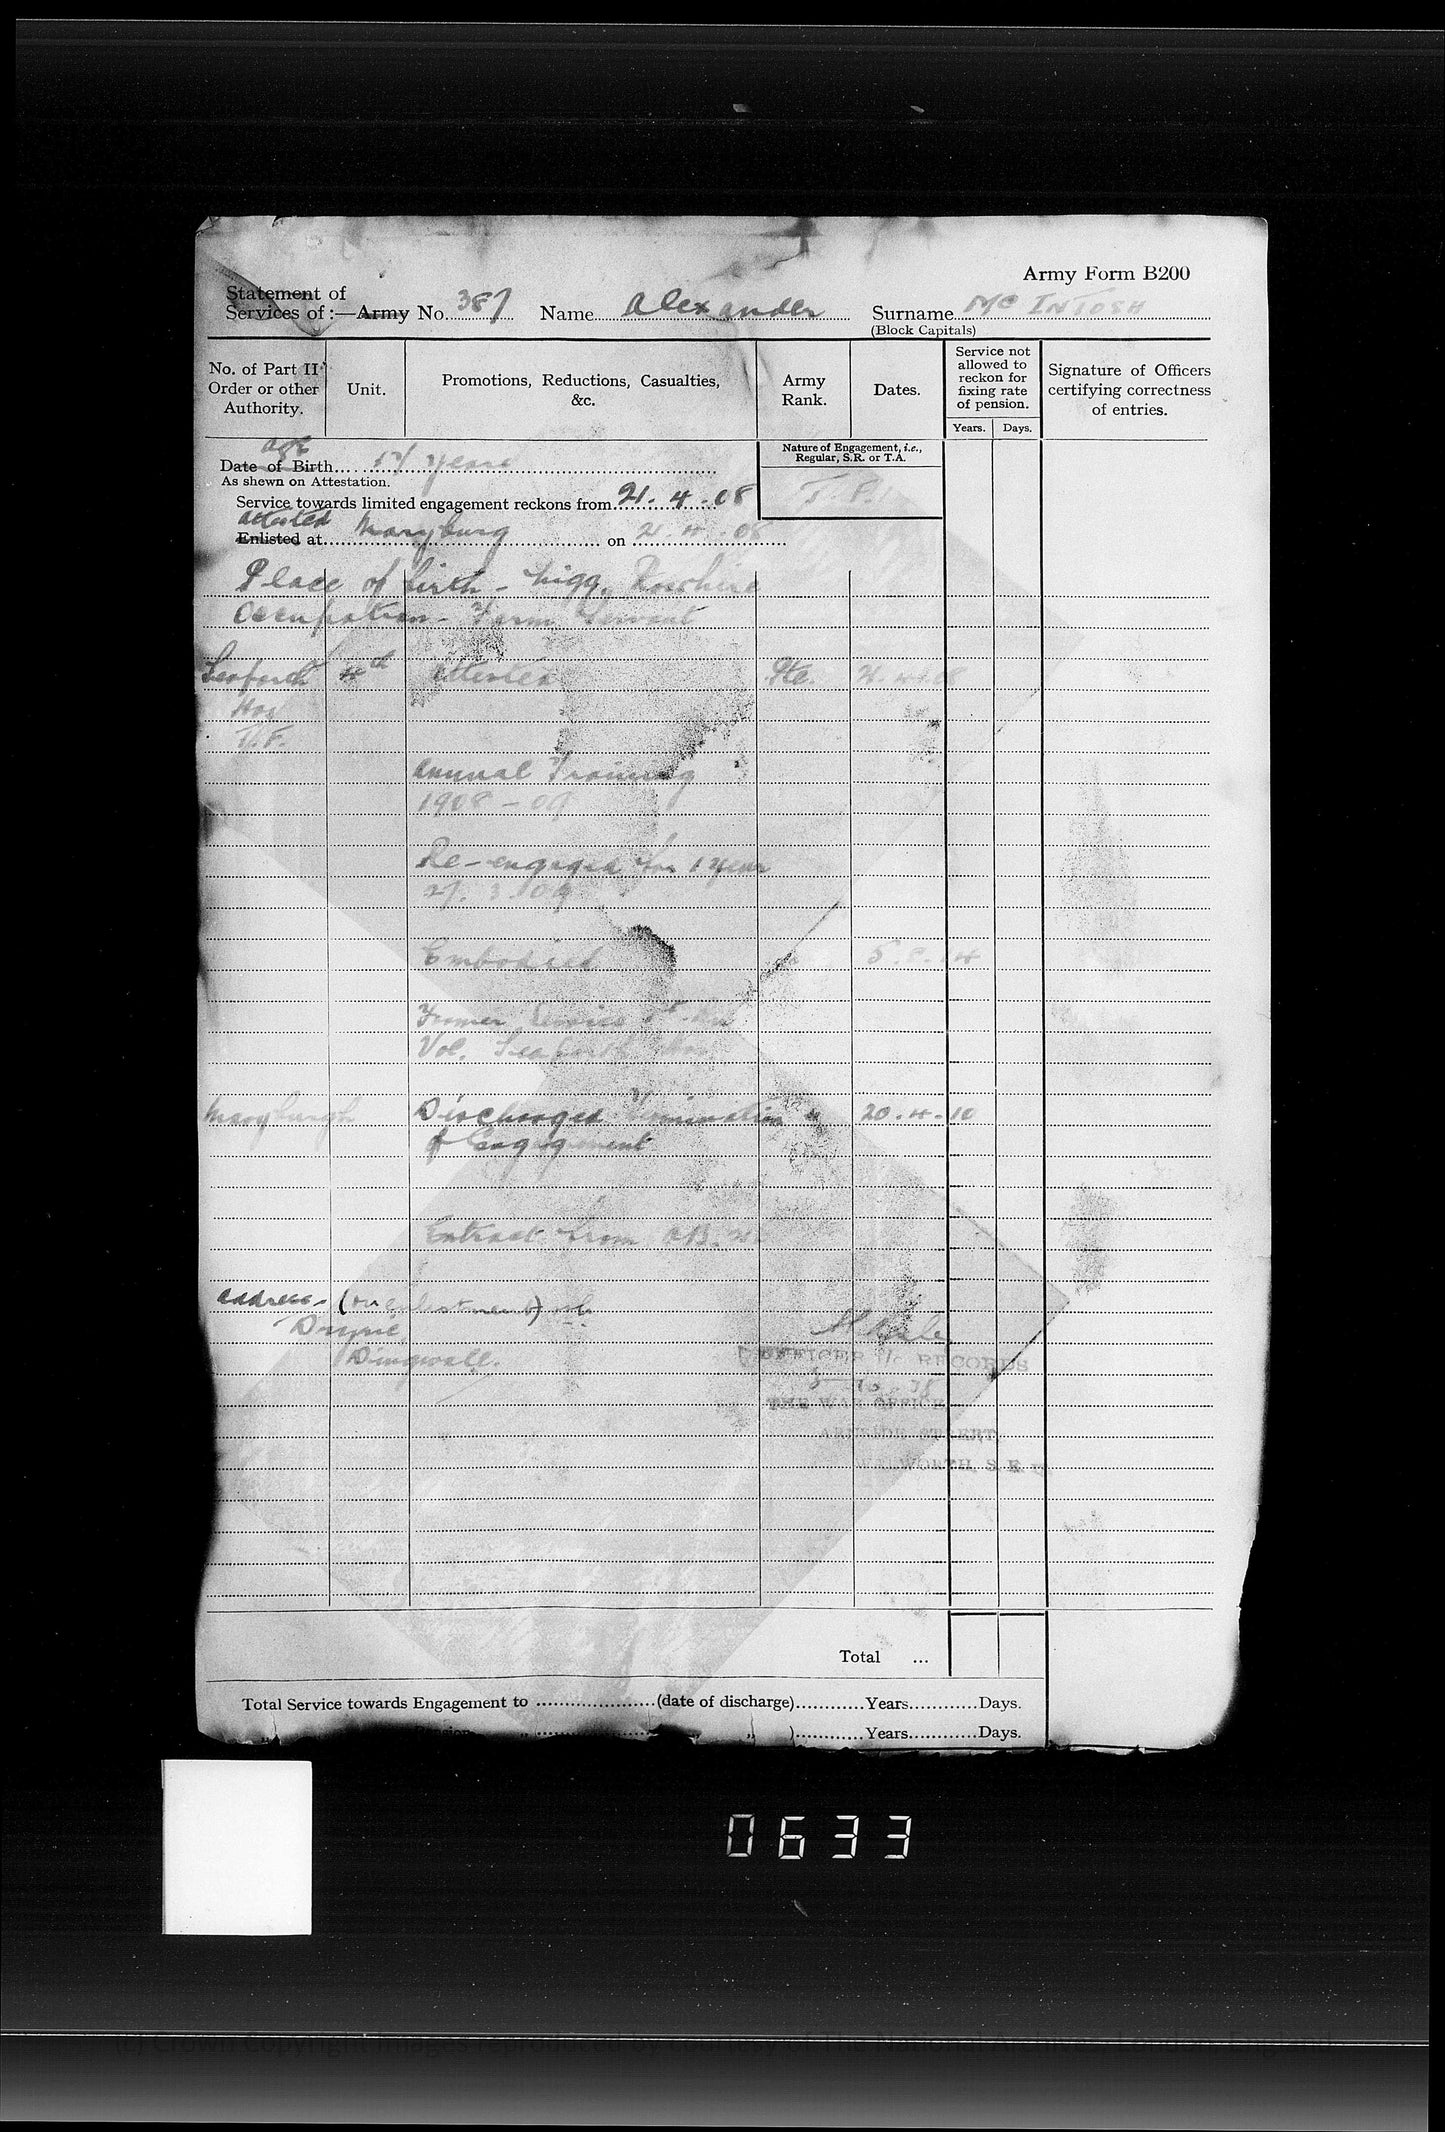 Army Form B200
Statement of
Services of :—Army No. 387 Name Alexander Surname Mc INTOSH
(Block Capitals)
No. of Part II Order or other Authority.
Unit.
Promotions, Reductions, Casualties, &c.
Army Rank.
Dates.
Service not allowed to reckon for fixing rate of pension.
Years. Days.
Signature of Officers certifying correctness of entries.
age
Date of Birth 17 years
As shewn on Attestation.
Nature of Engagement, i.e., Regular, S.R. or T.A.
Service towards limited engagement reckons from 21.4.08
attested
Enlisted at Maryburg on 21.4.08
Place of birth - Nigg, Rosshire
Occupation - Farm Servant
Seaforth 4th Attested Pte. 21.4.08
T.F.
Annual Training
1908 - 09
Re-engaged for 1 year
27.3.09
Embodied 5.8.14
Former Service 1st
Vol. Seaforth
Maryburgh Discharged Termination 20.4.10
of Engagement
Extract from
address - (on enlistment)
Dingwall.
OFFICER I/c RECORDS
THE WAR OFFICE,
STREET,
WALWORTH, S.E.
Total ...
Total Service towards Engagement to (date of discharge) Years Days.
Pension " " ) Years Days.
0633
(c) Crown Copyright Images reproduced by courtesy of The National Archives, London, England.